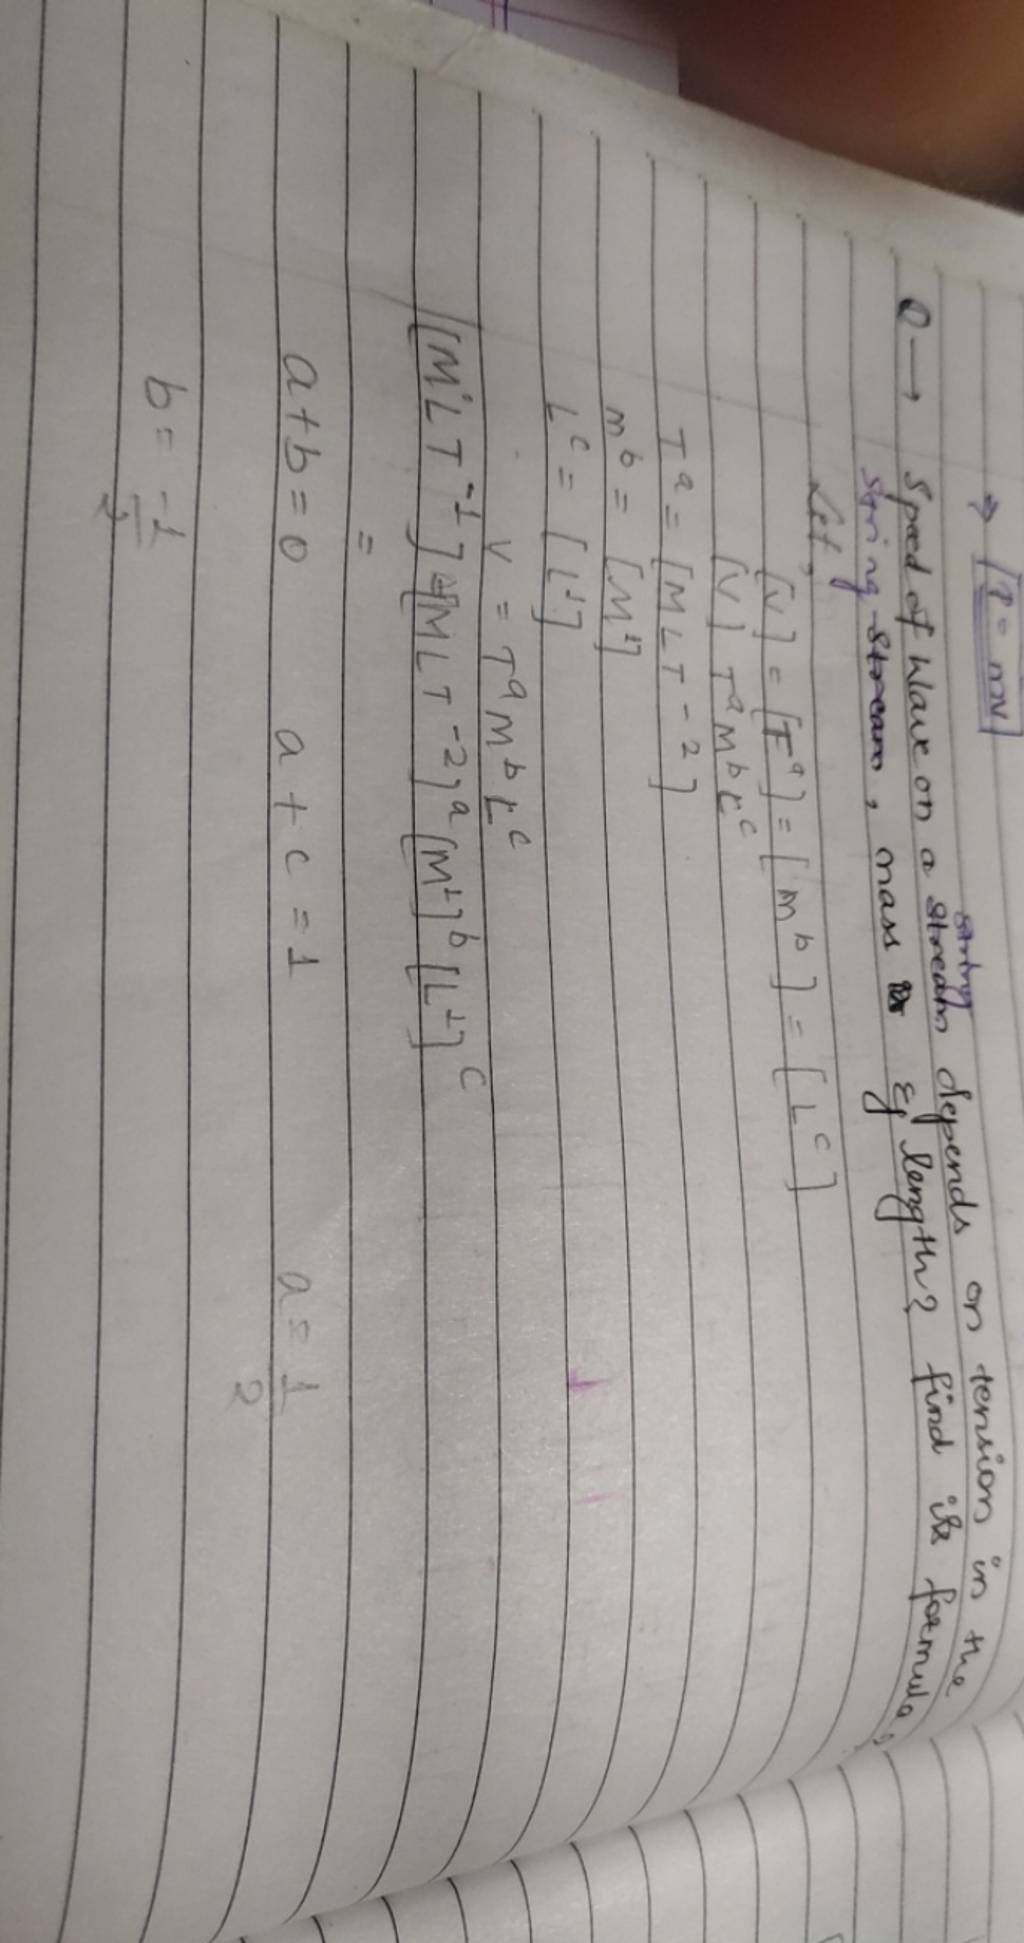 → P = mv
Q → Speed of Wave on a string depends on tension in the
string, mass & length? find its formula?
Let,
[V] = [T^a] = [m^b] = [L^c]
[V] T^a M^b L^c
T^a = [M L T^-2]
m^b = [M^1]
L^c = [L^1]
V = T^a M^b L^c
[M^0 L T^-1] = [M L T^-2]^a [M^1]^b [L^1]^c
=
a+b=0 a+c=1 a=1/2
b=-1/2